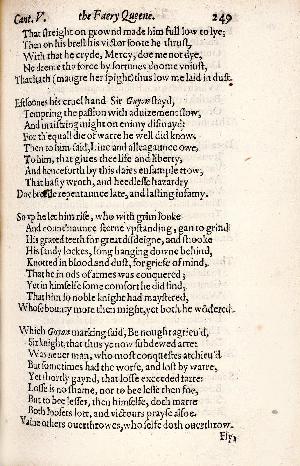 Cant. V. the Faery Queene. 249
That streight on grownd made him full low to lye;
Then on his brest his victor foote he thrust,
With that he cryde, Mercy, doe me not dye,
Ne deeme thy force by fortunes doome vniust,
That hath (maugre her spight) thus low me laid in dust.
Eftsoones his cruel hand Sir Guyon stayd,
Tempring the passion with aduizement slow,
And maistring might on enimy dismayd:
For th'equall die of warre he well did know;
Then to him said, Liue and alleagaunce owe,
To him, that giues thee life and liberty,
And henceforth by this daies ensample trow,
That hasty wroth, and heedlesse hazardry
Doe breede repentaunce late, and lasting infamy.
So vp he let him rise, who with grim looke
And count'naunce sterne vpstanding, gan to grind
His grated teeth for great disdeigne, and shooke
His sandy lockes, long hanging downe behind,
Knotted in blood and dust, for griefe of mind,
That he in ods of armes was conquered;
Yet in himselfe some comfort he did find,
That him so noble knight had maystered,
Whose bounty more then might, yet both he wõdered.
Which Guyon marking said, Be nought agrieu'd,
Sir knight, that thus ye now subdewed arre:
Was neuer man, who most conquestes atchieu'd
But sometimes had the worse, and lost by warre,
Yet shortly gaynd, that losse exceeded farre:
Losse is no shame, nor to bee lesse then foe,
But to bee lesser, then himselfe, doth marre
Both loosers lott, and victours prayse alsoe.
Vaine others ouerthrowes, who selfe doth ouerthrow.
Fly,